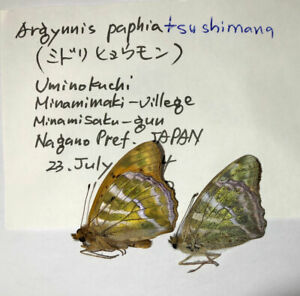 Argynnis paphia tsushimana
(ミドリヒョウモン)
Uminokuchi
Minamimaki-villege
Minamisaku-gun
Nagano Pref. JAPAN
23. July